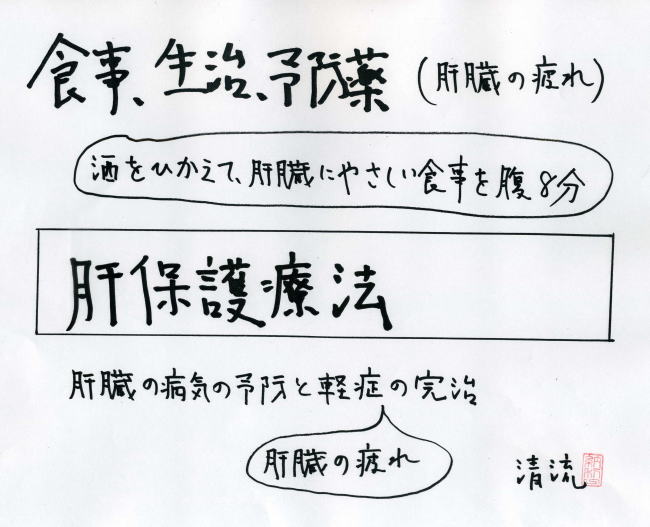 食事、生治、予防薬 (肝臓の疲れ)
酒をひかえて、肝臓にやさしい食事を腹8分
肝保護療法
肝臓の病気の予防と軽症の完治
肝臓の疲れ
清流